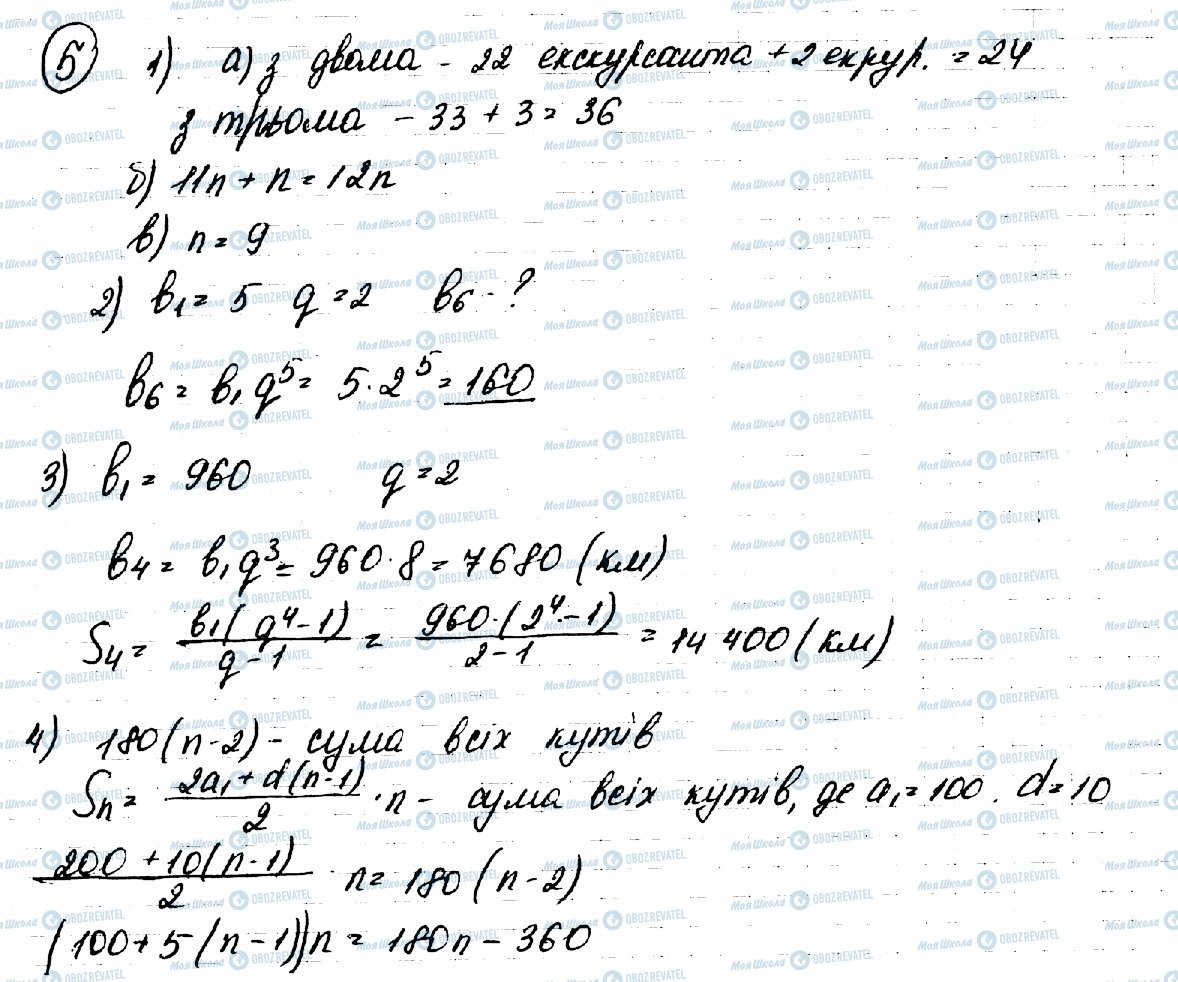 5 1) а) з двома - 22 екскурсанта + 2 екрур. = 24
з трьома - 33 + 3 = 36
б) 11n + n = 12n
в) n = 9
2) b₁ = 5 q = 2 b₆ - ?
b₆ = b₁q⁵ = 5·2⁵ = 160
3) b₁ = 960 q = 2
b₄ = b₁q³ = 960·8 = 7680 (км)
S₄ = b₁(q⁴-1)/(q-1) = 960·(2⁴-1)/(2-1) = 14 400 (км)
4) 180(n-2) - сума всіх кутів
Sn = (2a₁ + d(n-1))/2 · n - сума всіх кутів, де a₁ = 100. d = 10
(200 + 10(n-1))/2 · n = 180(n-2)
(100 + 5(n-1))n = 180n - 360